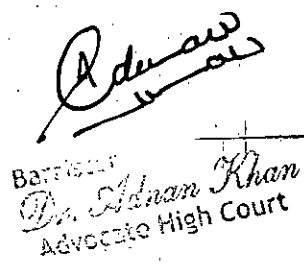 Barrister
Dr. Adnan Khan
Advocate High Court